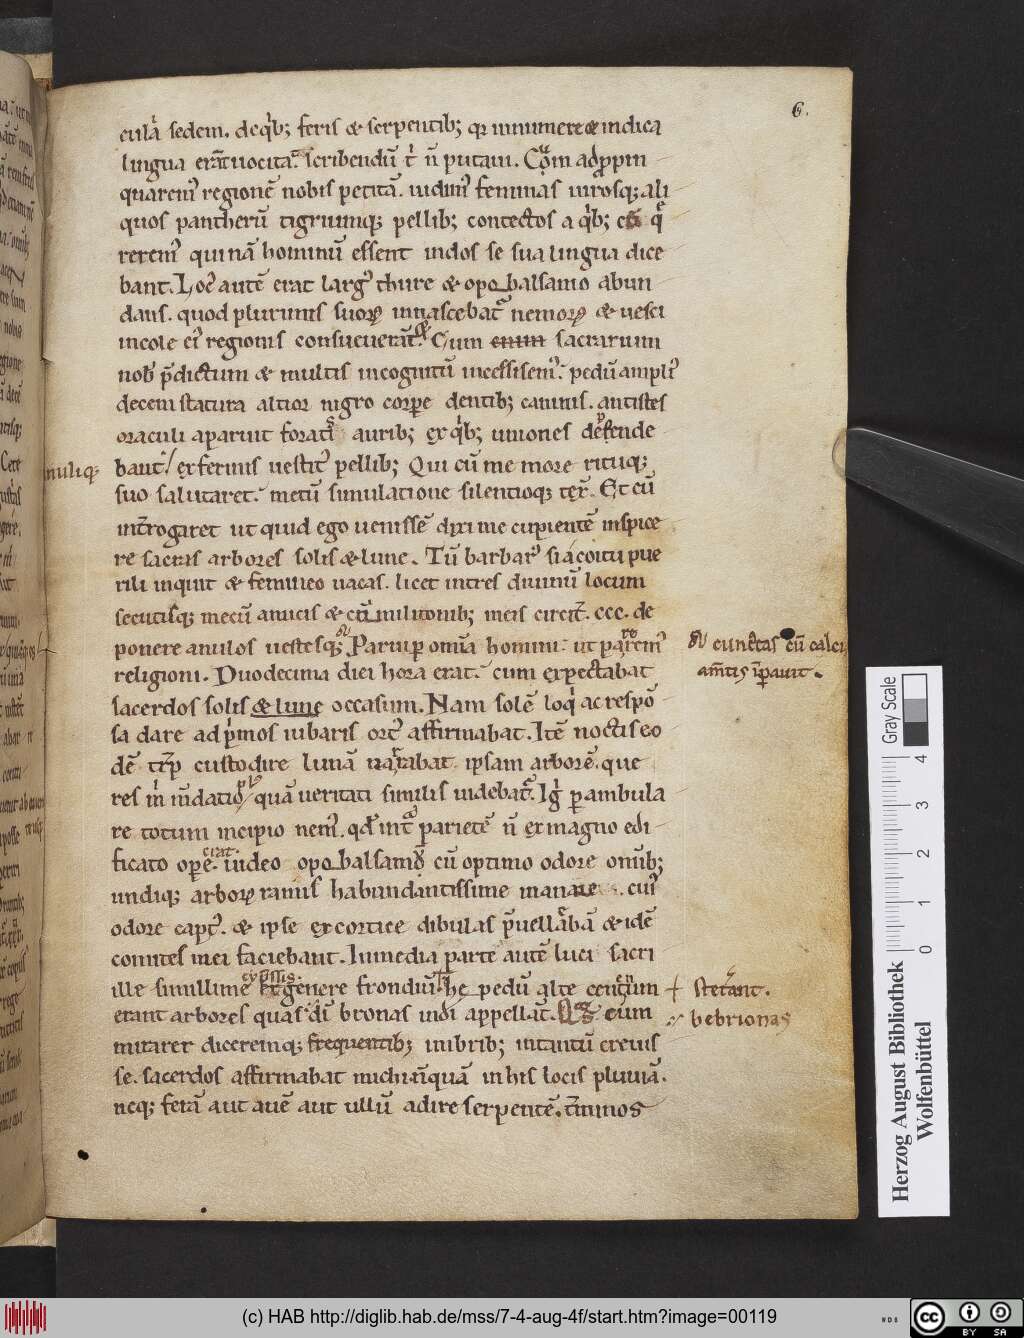 6.
culā sedem. deqͥb; feris & serpentib; qͥ innumere & indica
lingua erāt uocitā. scribendū ī n̄ putaui. Cōm adppin
quarem᾽ regionē nobis petitā. uidim᾽ feminas uirosq; ali
quos pantherū tigriumq; pellib; contectos a qͥb; cū q̄
rerem᾽ qui nā hominū essent indos se sua lingua dice
bant. Loc᾽ autē erat larg᾽ thure & opobalsamo abun
dans. quod plurimis suoꝝ innascebat᾽ nemoꝝ & uesci
incole ei᾽ regionis consueuerāt. Cum enim sacrarum
nob᾽ p̄dictum & multis incognitū incessisem᾽. pedū ampli᾽
decem statura altior nigro corpe dentib; caninis. antistes
oraculi aparuit foratͥ aurib; ex qͥb; uniones defende
bant / & ferinis uestit᾽ pellib; Qui cū me more rituq;
nuliq;
suo salutaret. metū simulatione silentioq; tex̄. Et cū
int̄rogaret ut quid ego uenissē dixi me cupientē inspice
re sacras arbores solis & lune. Tū barbar᾽ si a coitu pue
rili inquit & femineo uacas. licet intres diuinū locum
secutisq; mecū amicis & cū militonib; meis circit̄. ccc. de
ponere anulos uestesq; Parui p omīa homini ut parem᾽
ſꝫ cunctas cū calci
am̄tis īpauit.
religioni. Duodecima diei hora erat. cum expectabat
sacerdos solis & lune occasum. Nam solē loqͥ ac respō
sa dare ad pͥmos iubaris ort᾽ affirmabat. Itē noctis eo
dē t̄rp custodire lunā narrabat ipsam arborē. que
res m̄ īudatio quā ueritati similis uidebat᾽. Igͥ pambula
re totum incipio nem᾽. qd̄ int᾽ parietē n̄ ex magno edi
ficato opē. iudeo opobalsamū cū optimo odore omīb;
erat
undiq; arboꝝ ramis habundantissime manare. cui᾽
odore capt᾽. & ipse ex cortice dibulas p̄uellābā & idē
comites mei faciebant. In media parte autē luci sacri
ille simillime ex genere frondiū he pedū alte centum
+ stetant.
erant arbores quas dī bronas indi appellāt. Qͣs cum
bebrionas
mirarer diceremq; frequentib; inibrib; intantū creuis
se. sacerdos affirmabat michi n̄quā in his locis pluuiā.
neq; ferā aut auē aut ullū adire serpentē. t̄minos
Gray Scale
0 1 2 3 4
Herzog August Bibliothek
Wolfenbüttel
(c) HAB http://diglib.hab.de/mss/7-4-aug-4f/start.htm?image=00119
WDB
cc
BY SA